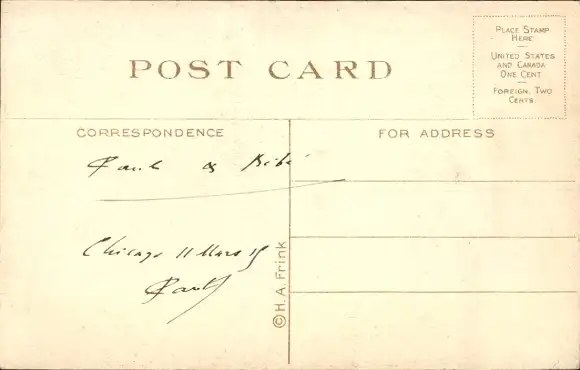 POST CARD
PLACE STAMP
HERE
UNITED STATES
AND CANADA
ONE CENT
FOREIGN, TWO
CENTS.
CORRESPONDENCE
FOR ADDRESS
Bébé
Chicago 11 Mars 15
© H. A. Frink